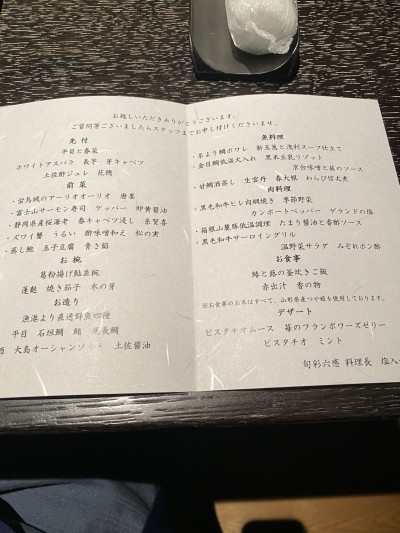 お越しいただきありがとうございます。
ご質問等ございましたらスタッフまでお申し付けくださいませ。
先 付
平貝と春菜
ホワイトアスパラ 長芋 芽キャベツ
土佐酢ジュレ 花穂
前 菜
・蛍烏賊のアーリオオーリオ 唐墨
・富士山サーモン寿司 ケッパー 卵黄醤油
・静岡県産桜海老 春キャベツ浸し 糸賀喜
・ズワイ蟹 うるい 酢味噌和え 松の実
・蒸し鮑 玉子豆腐 青さ餡
お 椀
葛粉揚げ鮎並椀
蓮麩 焼き茄子 木の芽
お造り
漁港より直送鮮魚四種
平目 石垣鯛 鮪 尾長鯛
大島オーシャンソルト 土佐醤油
魚料理
・糸より鯛ポワレ 新玉葱と浅利スープ仕立て
・金目鯛低温火入れ 黒米豆乳リゾット
京白味噌と苺のソース
・甘鯛酒蒸し 生雲丹 春大根 わらび信太煮
肉料理
・黒毛和牛ヒレ肉網焼き 季節野菜
カンポートペッパー ゲランドの塩
・箱根山麓豚低温調理 たまり醤油と香酢ソース
・黒毛和牛サーロイングリル
温野菜サラダ みぞれポン酢
お食事
鰺と蕗の釜炊きご飯
赤出汁 香の物
※お食事のお米はすべて、山形県産つや姫を使用しております。
デザート
ピスタチオムース 苺のフランボワーズゼリー
ピスタチオ ミント
旬彩六感 料理長 塩入